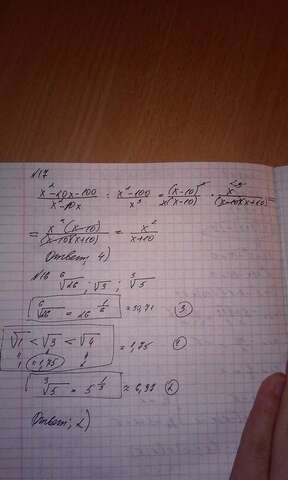 №17
(x²-20x-100)/(x²-10x) : (x²-100)/x³ = (x-10)²/(x(x-10)) · x³/((x-10)(x+10)) =
= x²(x-10)/((x-10)(x+10)) = x²/(x+10)
Ответ: 4)
№16 ⁶√26 ; √3 ; ³√5
⁶√26 = 26^(1/6) = 10,71 ③
√1 < √3 < √4 = 1,75
1 1,75 2
³√5 = 5^(1/3) ≈
Ответ: 2)